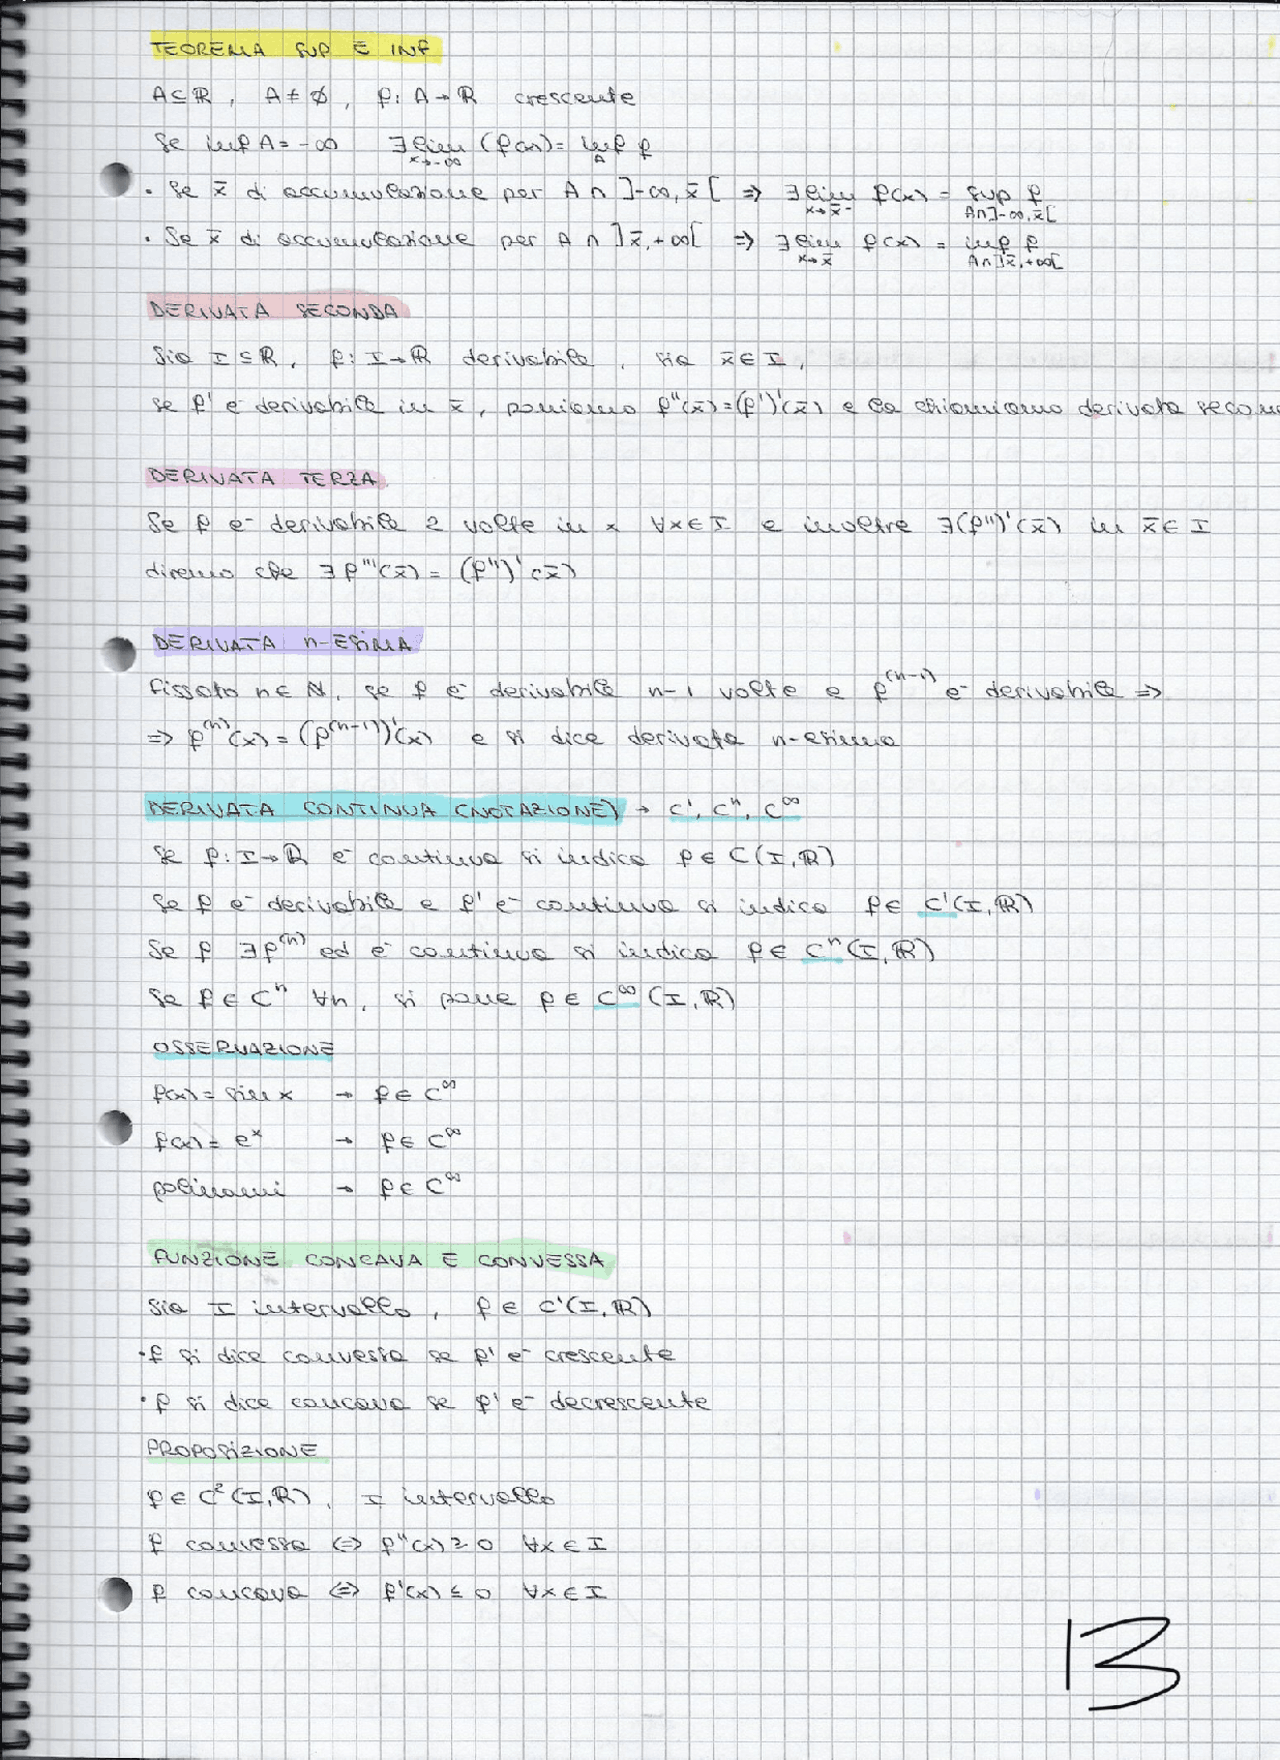 TEOREMA SUP E INF
A⊆ℝ, A≠∅, f: A→ℝ crescente
Se inf A = -∞ ∃ lim x→-∞ (f(x)) = inf A f
· Se x̄ di accumulazione per A∩]-∞,x̄[ => ∃ lim x→x̄⁻ f(x) = sup A∩]-∞,x̄[ f
· Se x̄ di accumulazione per A∩]x̄,+∞[ => ∃ lim x→x̄ f(x) = inf A∩]x̄,+∞[ f
DERIVATA SECONDA
Sia I⊆ℝ, f: I→ℝ derivabile, sia x̄∈I,
se f' è derivabile in x̄, poniamo f''(x̄)=(f')'(x̄) e la chiamiamo derivata secon
DERIVATA TERZA
Se f è derivabile 2 volte in x ∀x∈I e inoltre ∃(f'')'(x̄) in x̄∈I
diremo che ∃f'''(x̄) = (f'')'(x̄)
DERIVATA n-ESIMA
Fissato n∈ℕ, se f è derivabile n-1 volte e f⁽ⁿ⁻¹⁾ è derivabile =>
=> f⁽ⁿ⁾(x) = (f⁽ⁿ⁻¹⁾)'(x) e si dice derivata n-esima
DERIVATA CONTINUA (NOTAZIONE) → C¹, Cⁿ, C^∞
Se f: I→ℝ è continua si indica f∈C(I,ℝ)
Se f è derivabile e f' è continua si indica f∈ C¹(I,ℝ)
Se f ∃f⁽ⁿ⁾ ed è continua si indica f∈ Cⁿ(I,ℝ)
Se f∈Cⁿ ∀n, si pone f∈ C^∞(I,ℝ)
OSSERVAZIONE
f(x) = sin x → f∈C^∞
f(x) = eˣ → f∈C^∞
polinomi → f∈C^∞
FUNZIONE CONCAVA E CONVESSA
Sia I intervallo, f∈ C¹(I,ℝ)
· f si dice convessa se f' è crescente
· f si dice concava se f' è decrescente
PROPOSIZIONE
f∈C²(I,ℝ), I intervallo
f convessa <=> f''(x) ≥ 0 ∀x∈I
f concava <=> f'(x) ≤ 0 ∀x∈I
13